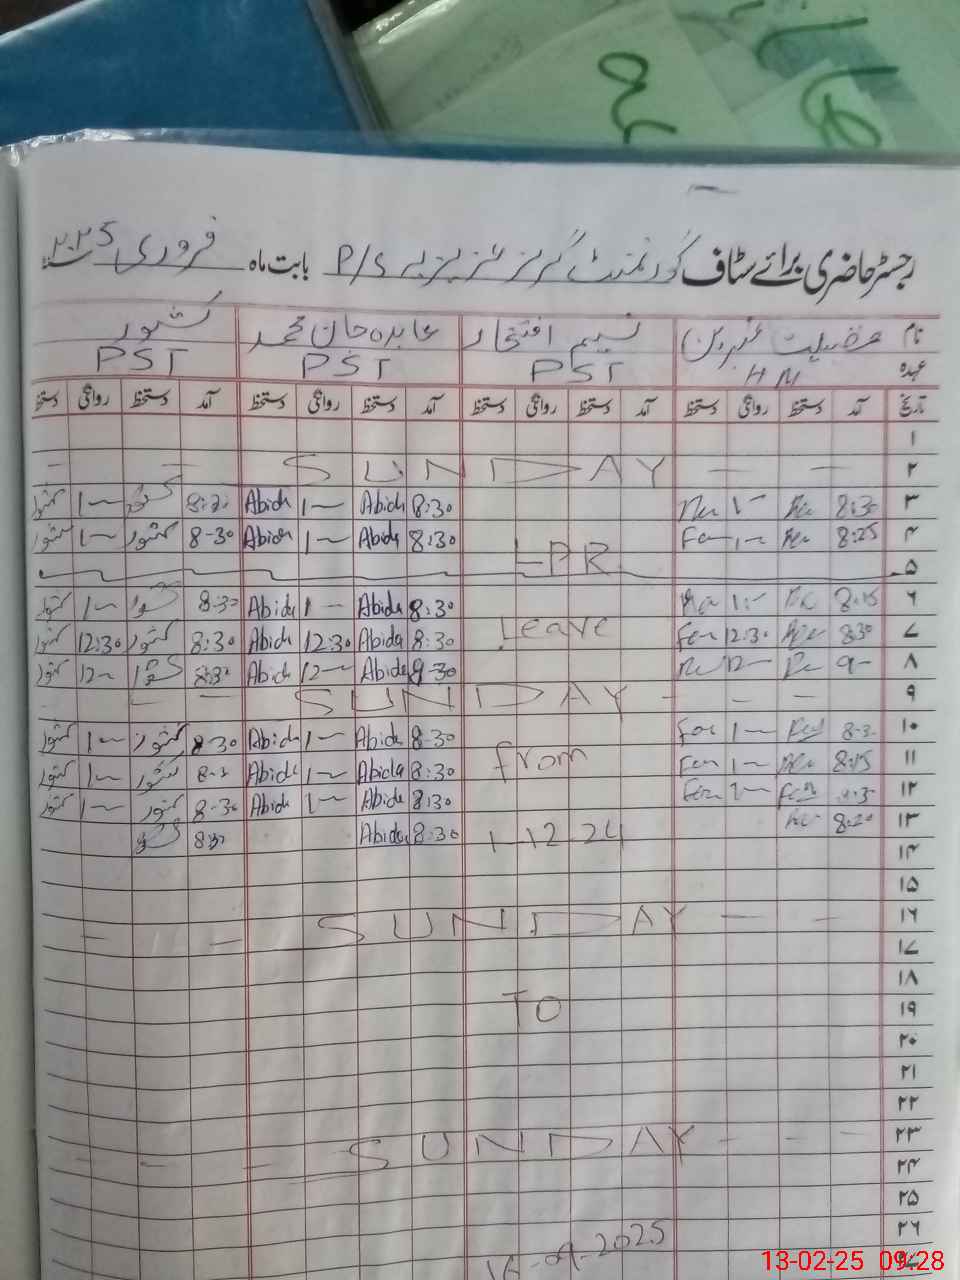 رجسٹر حاضری برائے سٹاف گورنمنٹ گرلز P/S بابت ماہ فروری ۲۰۲۵
نام نسیم افتخار عابدہ جان محمد کشور
عہدہ HM PST PST PST
تاریخ آمد دستخط روانگی دستخط آمد دستخط روانگی دستخط آمد دستخط روانگی دستخط آمد دستخط روانگی دستخط
۱
۲ - - SUNDAY - -
۳ 8:30 1- 8:30 Abida 1- Abida کشور 1- کشور
۴ 8:25 1- 8:30 Abida 1- Abida 8-30 کشور 1- کشور
LPR
۵
۶ 8:15 1- 8:30 Abida 1- Abida 8-30 1- کشور
۷ 8:30 12:30 Leave 8:30 Abida 12:30 Abida 8:30 کشور 12:30 کشور
۸ 9- 12- 8-30 Abida 12- Abida 8:30 12- کشور
۹ - - - SUNDAY - - -
۱۰ 1- 8-30 Abida 1- Abida 8-30 کشور 1- کشور
۱۱ 8:15 1- from 8:30 Abida 1- Abida کشور 1- کشور
۱۲ 8:30 Abida 1- Abida 8-30 کشور 1- کشور
۱۳ 8:20 1-12-24 8:30 Abida 8:30
۱۴
۱۵
۱۶ - - SUNDAY - - -
۱۷
۱۸
۱۹ TO
۲۰
۲۱
۲۲
۲۳ - - - SUNDAY - - -
۲۴
۲۵
۲۶
-2025
13-02-25 09:28